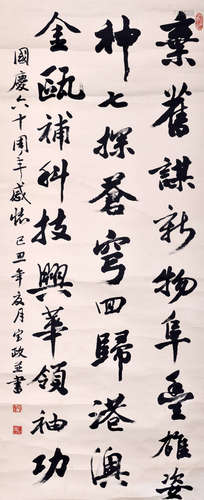 棄舊謀新物阜豐雄姿
神七探蒼穹回歸港澳
金甌補科技興華領袖功
國慶六十周年感懷 己丑年夏月 政并書